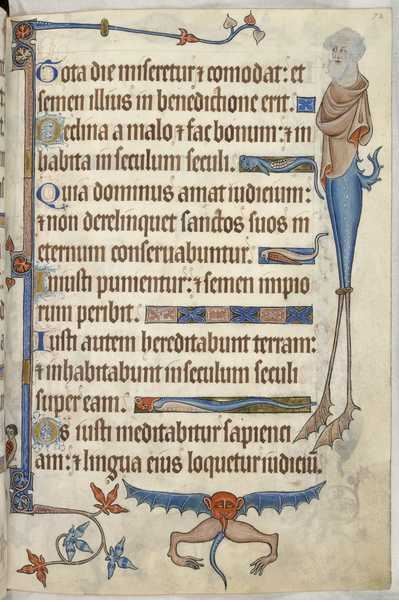 Tota die miseretur ⁊ comodat: et
semen illius in benedictione erit.
Declina a malo ⁊ fac bonum: ⁊ in
habita in seculum seculi.
Quia dominus amat iudicium:
⁊ non derelinquet sanctos suos in
eternum conseruabuntur.
Iniusti punientur: ⁊ semen impio
rum peribit.
Iusti autem hereditabunt terram:
⁊ inhabitabunt in seculum seculi
super eam.
Os iusti meditabitur sapienci
am: ⁊ lingua eius loquetur iudiciū.